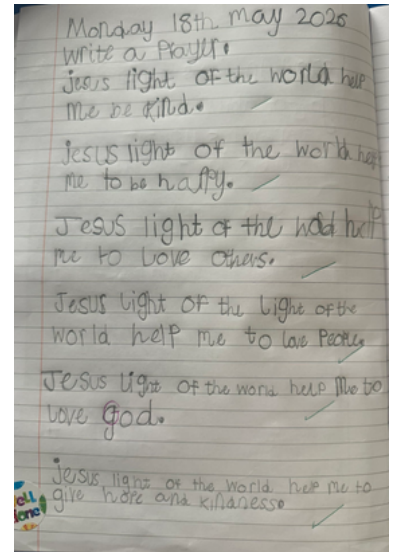 Monday 18th may 2026
write a Prayer.
jesus light of the world help
me be kind.
jesus light of the world help
me to be happy.
Jesus light of the world help
me to Love others.
Jesus Light of the Light of the
world help me to love People
Jesus Light of the world help me to
Love God.
jesus light of the world help me to
give hope and kindness.
ell
one